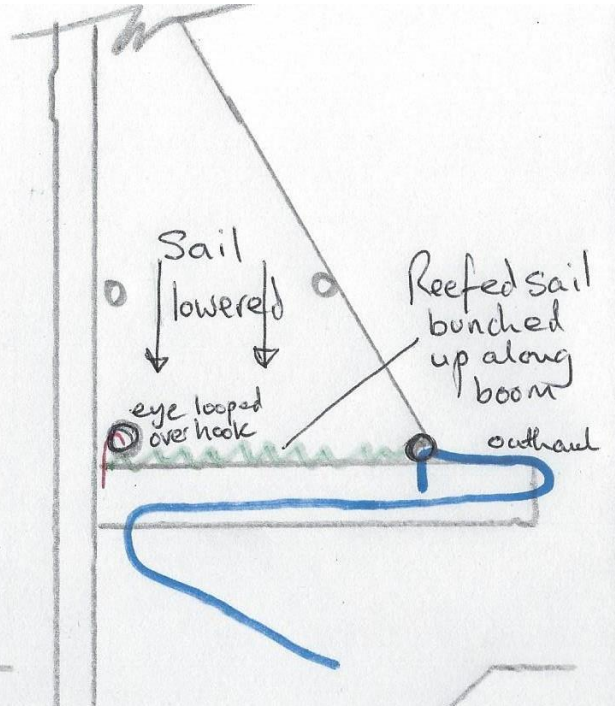 Sail
lowered
Reefed sail
bunched
up along
boom
eye looped
over hook
outhaul